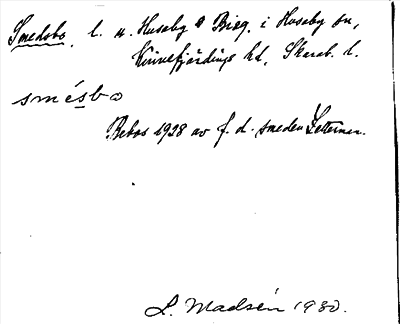 Smedsbo, l. u. Huseby Bieg. i Husaby sn,
Kinnefjärdings hd, Skarab. l.
smésbo
Bebos 1928 av f. d. smeden Zetterner.
L. Madsén 1930.